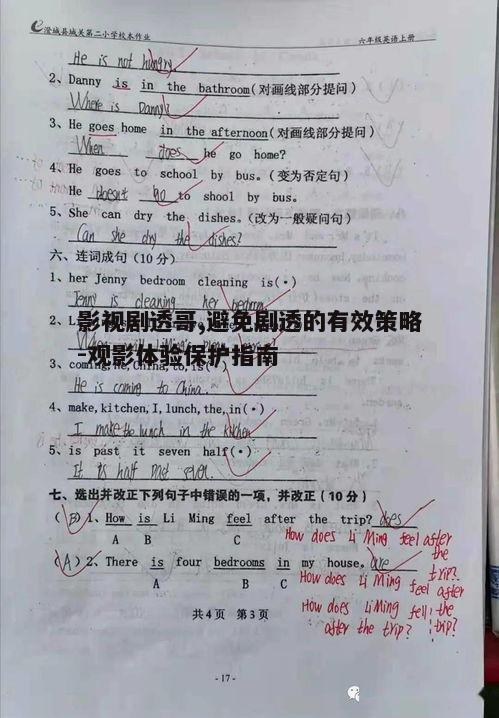 澄城县城关第二小学校本作业 六年级英语上册
He is not hungry
2、Danny is in the bathroom(对画线部分提问)
Where is Danny?
3、He goes home in the afternoon(对画线部分提问)
When does he go home?
4、He goes to school by bus.(变为否定句)
He doesn't go to shool by bus.
5、She can dry the dishes.(改为一般疑问句)
Can she dry the dishes?
六、连词成句(10分)
1、her Jenny bedroom cleaning is(·)
Jenny is cleaning her bedroom
影视剧透哥,避免剧透的有效策略
2、L
-观影体验保护指南
3、coming,he,China,to,is(
He is coming to China.
4、make,kitchen,I,lunch,the,in(·)
I make the lunch in the kitchen
5、is past it seven half(·)
It is half past seven.
七、选出并改正下列句子中错误的一项,并改正(10分)
(B)1、How is Li Ming feel after the trip? does
A B C
How does Li Ming feel after the trip?
(A)2、There is four bedrooms in my house. are
A B C
How does Li Ming feel after the trip?
How does Li Ming fell after the trip?
共4页 第3页
-17-